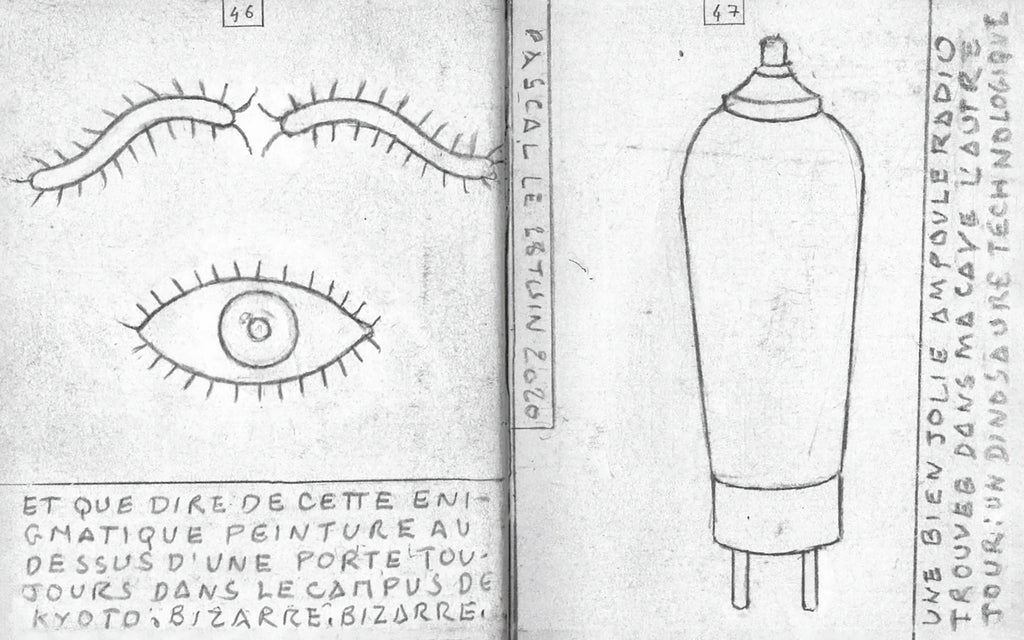 46
ET QUE DIRE DE CETTE ENI-
GMATIQUE PEINTURE AU
DESSUS D'UNE PORTE TOU-
JOURS DANS LE CAMPUS DE
KYOTO: BIZARRE: BIZARRE.
47
PASCAL LE 28 JUIN 2020
UNE BIEN JOLIE AMPOULE RADIO
TROUVEE DANS MA CAVE L'AUTRE
JOUR: UN DINOSAURE TECHNOLOGIQUE